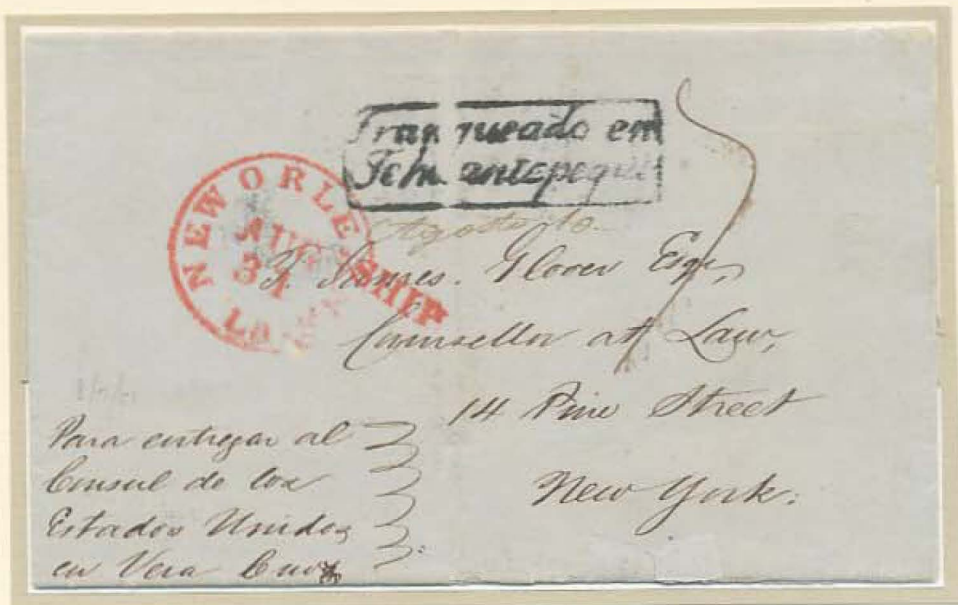 Franqueado en
Tehuantepeque
Agosto 10.
NEW ORLEANS
AUG
31
La.
SHIP
T. James. Glover Esqr,
Counsellor at Law,
14 Pine Street
New York.
Para entregar al
Consul de los
Estados Unidos
en Vera Cruz